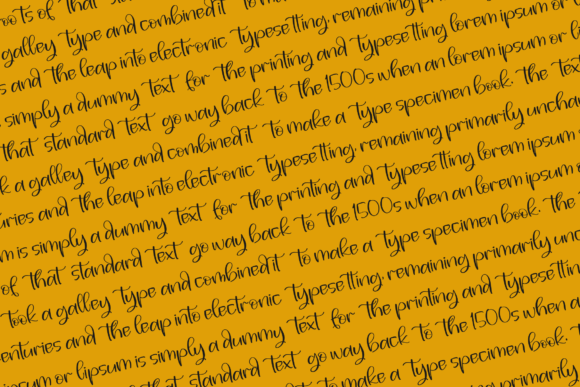 oots of that
galley type and combined it to ma
s and the leap into electronic typesetting, remaining
is simply a dummy text for the printing and typesetting lorem ipsum
that standard text go way back to the 1500s when an lorem ipsum or l
k a galley type and combined it to make a type specimen book. The text
uries and the leap into electronic typesetting, remaining primarily uncha
m is simply a dummy text for the printing and typesetting lorem ipsum
of that standard text go way back to the 1500s when an lorem ipsum or
took a galley type and combined it to make a type specimen book. The
enturies and the leap into electronic typesetting, remaining primarily unc
ipsum or lipsum is simply a dummy text for the printing and typesetting
that standard text go way back to the 1500s when a
to make a type specimen book.
primarily